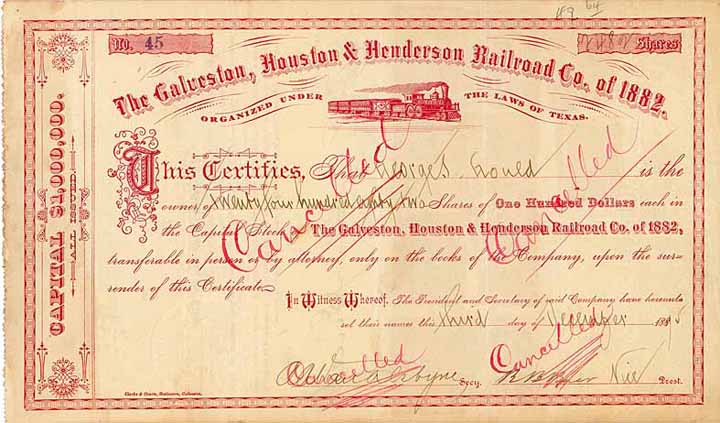 64
No. 45
2482 Shares
The Galveston, Houston & Henderson Railroad Co. of 1882.
ORGANIZED UNDER THE LAWS OF TEXAS.
CAPITAL $1,000,000.
ALL ISSUED.
This Certifies, That George J. Gould is the
owner of Twenty four hundred eighty two Shares of One Hundred Dollars each in
the Capital Stock The Galveston, Houston & Henderson Railroad Co. of 1882,
transferable in person or by attorney, only on the books of the Company, upon the sur-
render of this Certificate
In Witness Whereof, The President and Secretary of said Company have hereunto
set their names this Third day of December 1895
Cancelled
Cancelled
Cancelled
Cancelled
Secy. Vice Prest.